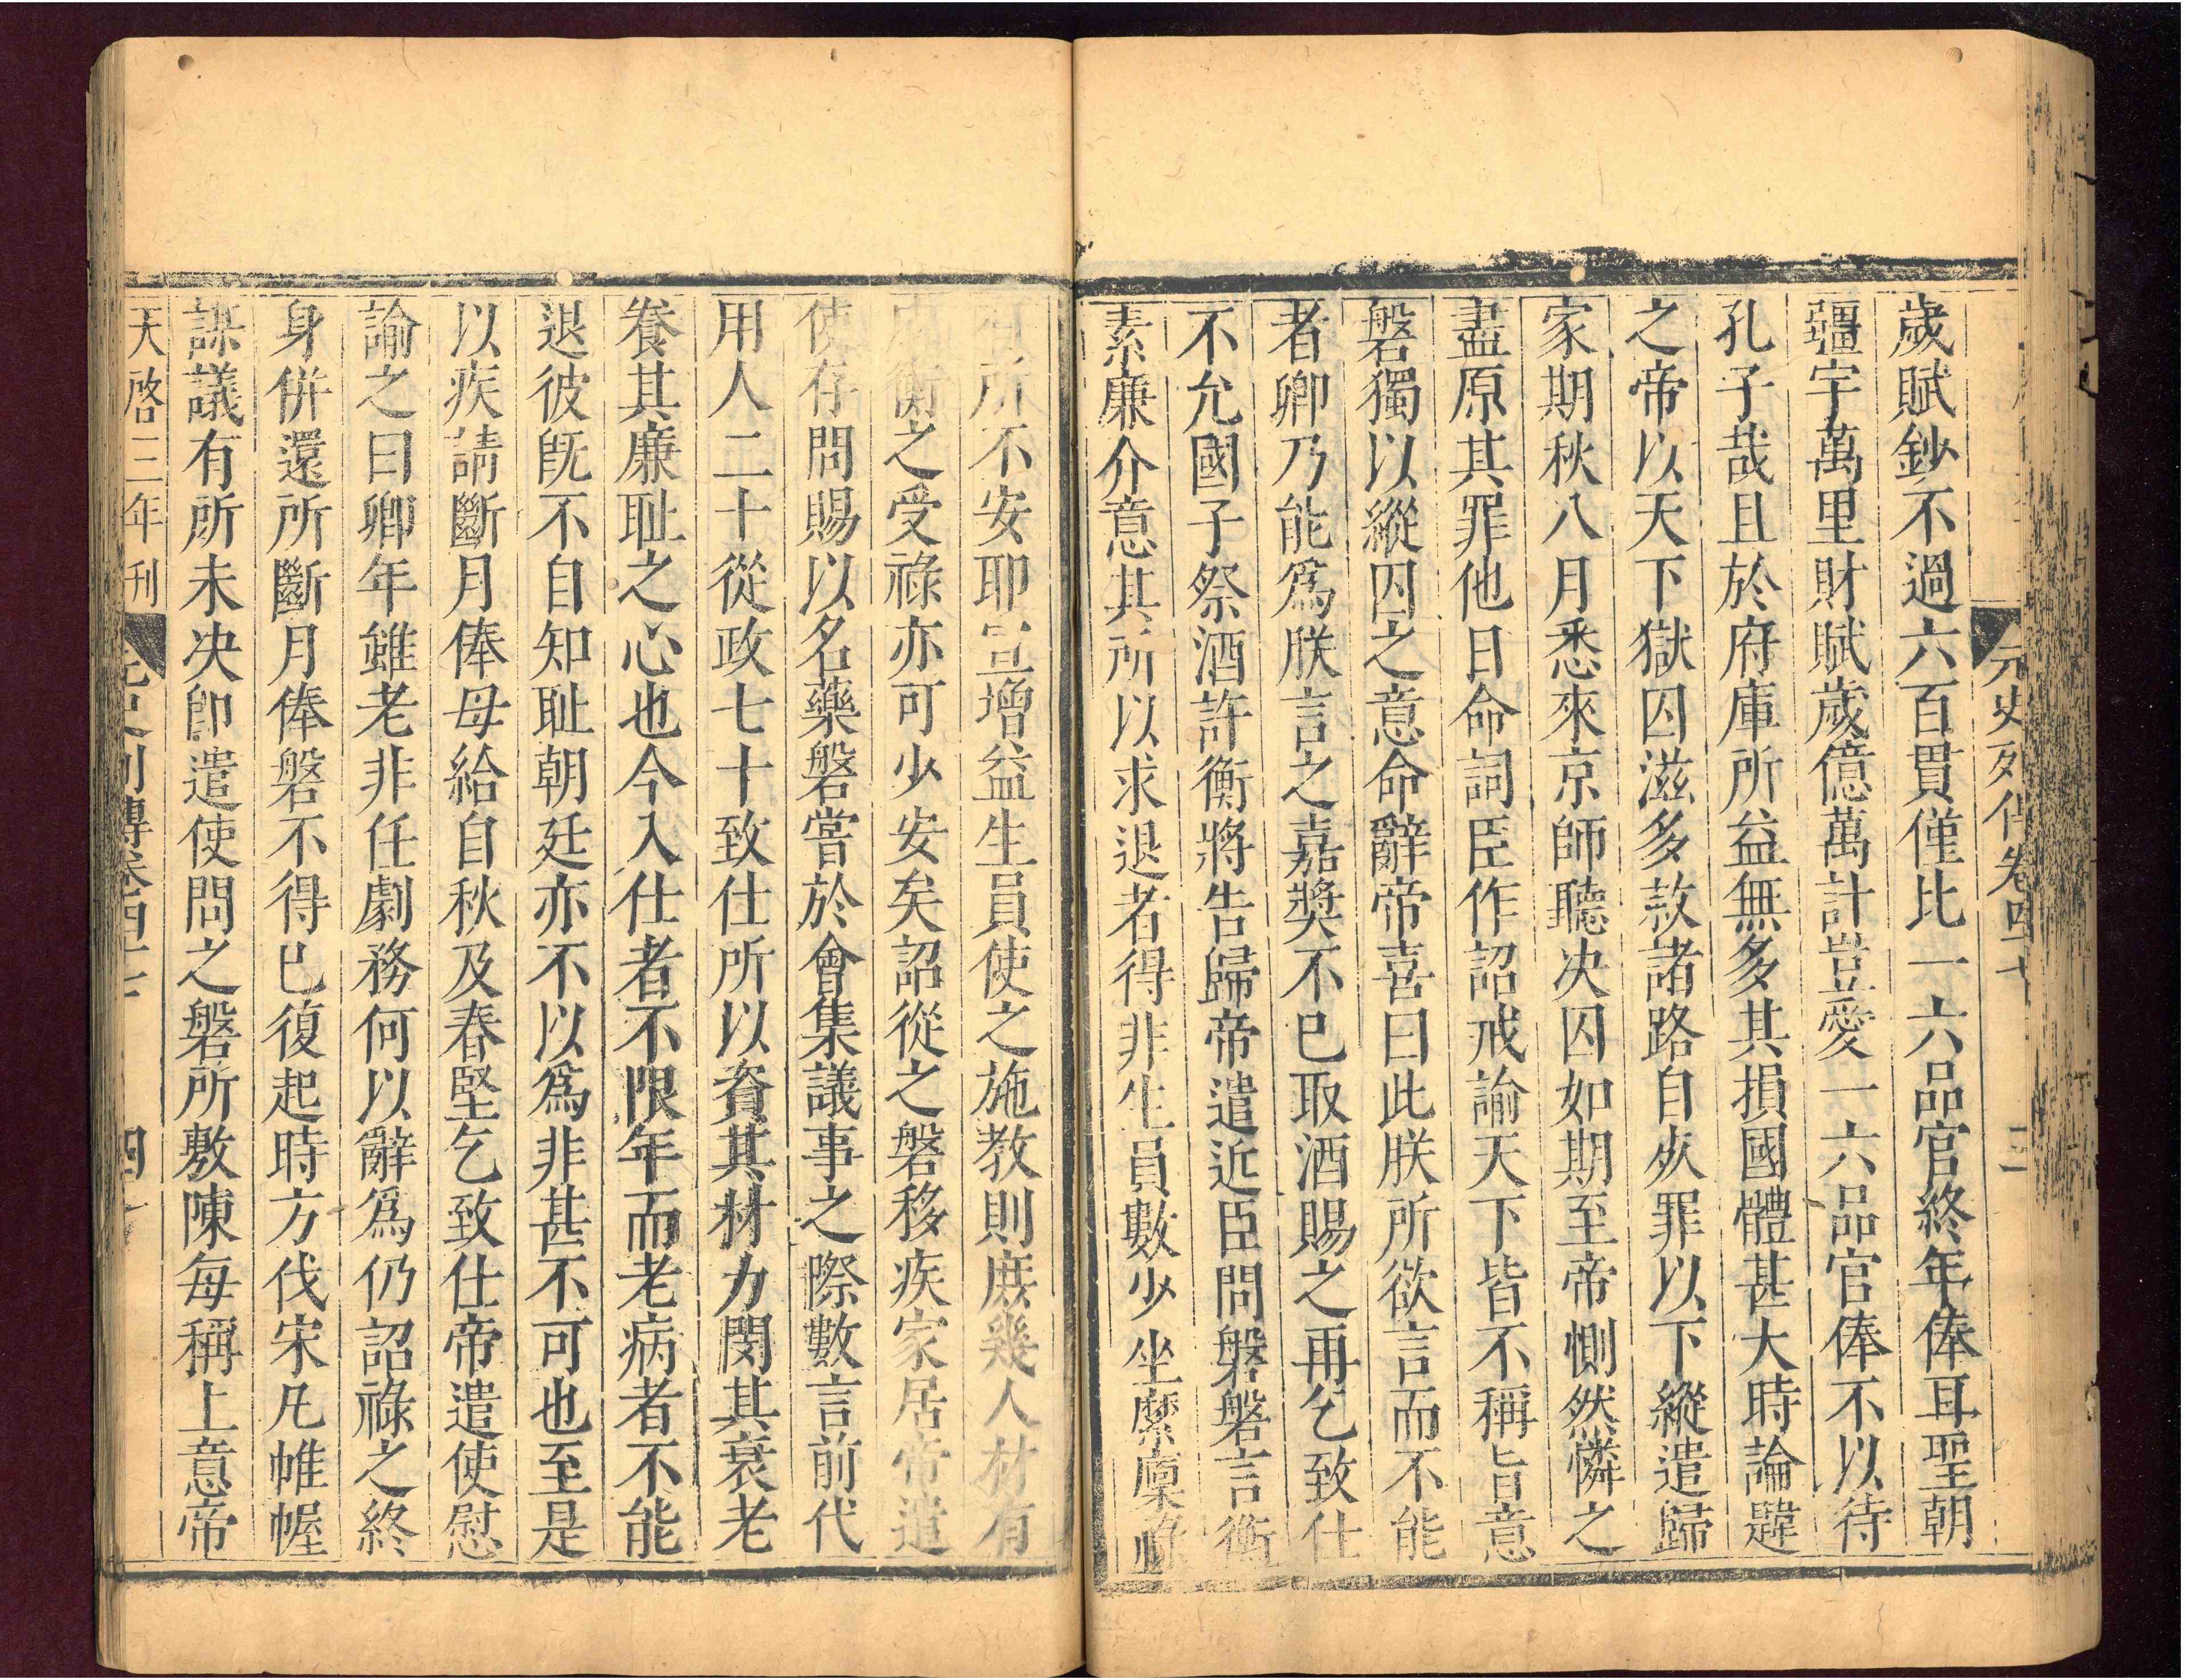 元史列傳卷四十七 三
歲賦鈔不過六百貫僅比一六品官終年俸耳聖朝
疆宇萬里財賦歲億萬計豈愛一六品官俸不以待
孔子哉且於府庫所益無多其損國體甚大時論韙
之帝以天下獄囚滋多敕諸路自死罪以下縱遣歸
家期秋八月悉來京師聽决囚如期至帝惻然憐之
盡原其罪他日命詞臣作詔戒諭天下皆不稱旨意
磐獨以縱囚之意命辭帝喜曰此朕所欲言而不能
者卿乃能爲朕言之嘉奬不已取酒賜之再乞致仕
不允國子祭酒許衡將告歸帝遣近臣問磐磐言衡
素廉介意其所以求退者得非生員數少坐縻廩祿
有所不安耶宜增益生員使之施教則庶幾人材有
成衡之受祿亦可少安矣詔從之磐移疾家居帝遣
使存問賜以名藥磐嘗於會集議事之際數言前代
用人二十從政七十致仕所以資其材力閔其衰老
養其廉耻之心也今入仕者不限年而老病者不能
退彼旣不自知耻朝廷亦不以爲非甚不可也至是
以疾請斷月俸毋給自秋及春堅乞致仕帝遣使慰
諭之曰卿年雖老非任劇務何以辭爲仍詔祿之終
身併還所斷月俸磐不得已復起時方伐宋凡帷幄
謀議有所未决卽遣使問之磐所敷陳每稱上意帝
天啓三年刊 元史列傳卷四十七 四